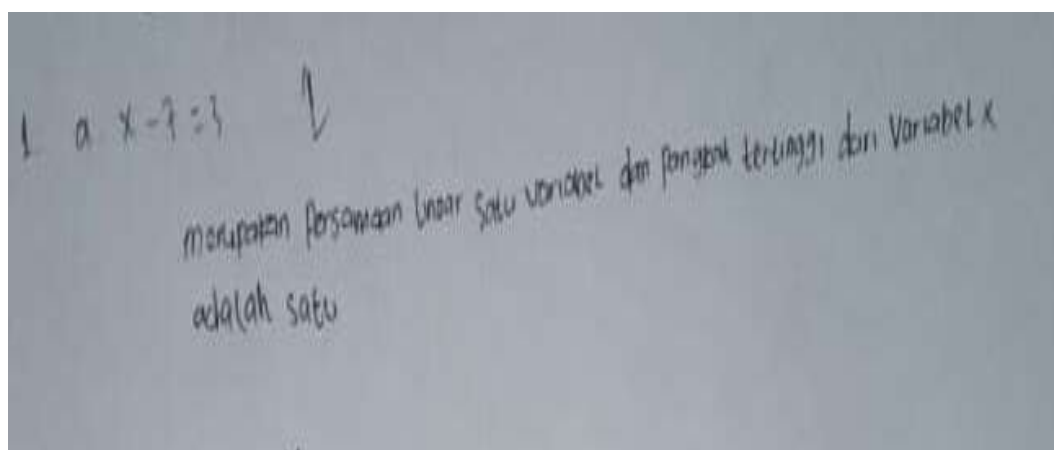 1 a x-7=3
merupakan Persamaan linear satu variabel dan pangkat tertinggi dari Variabel x
adalah satu